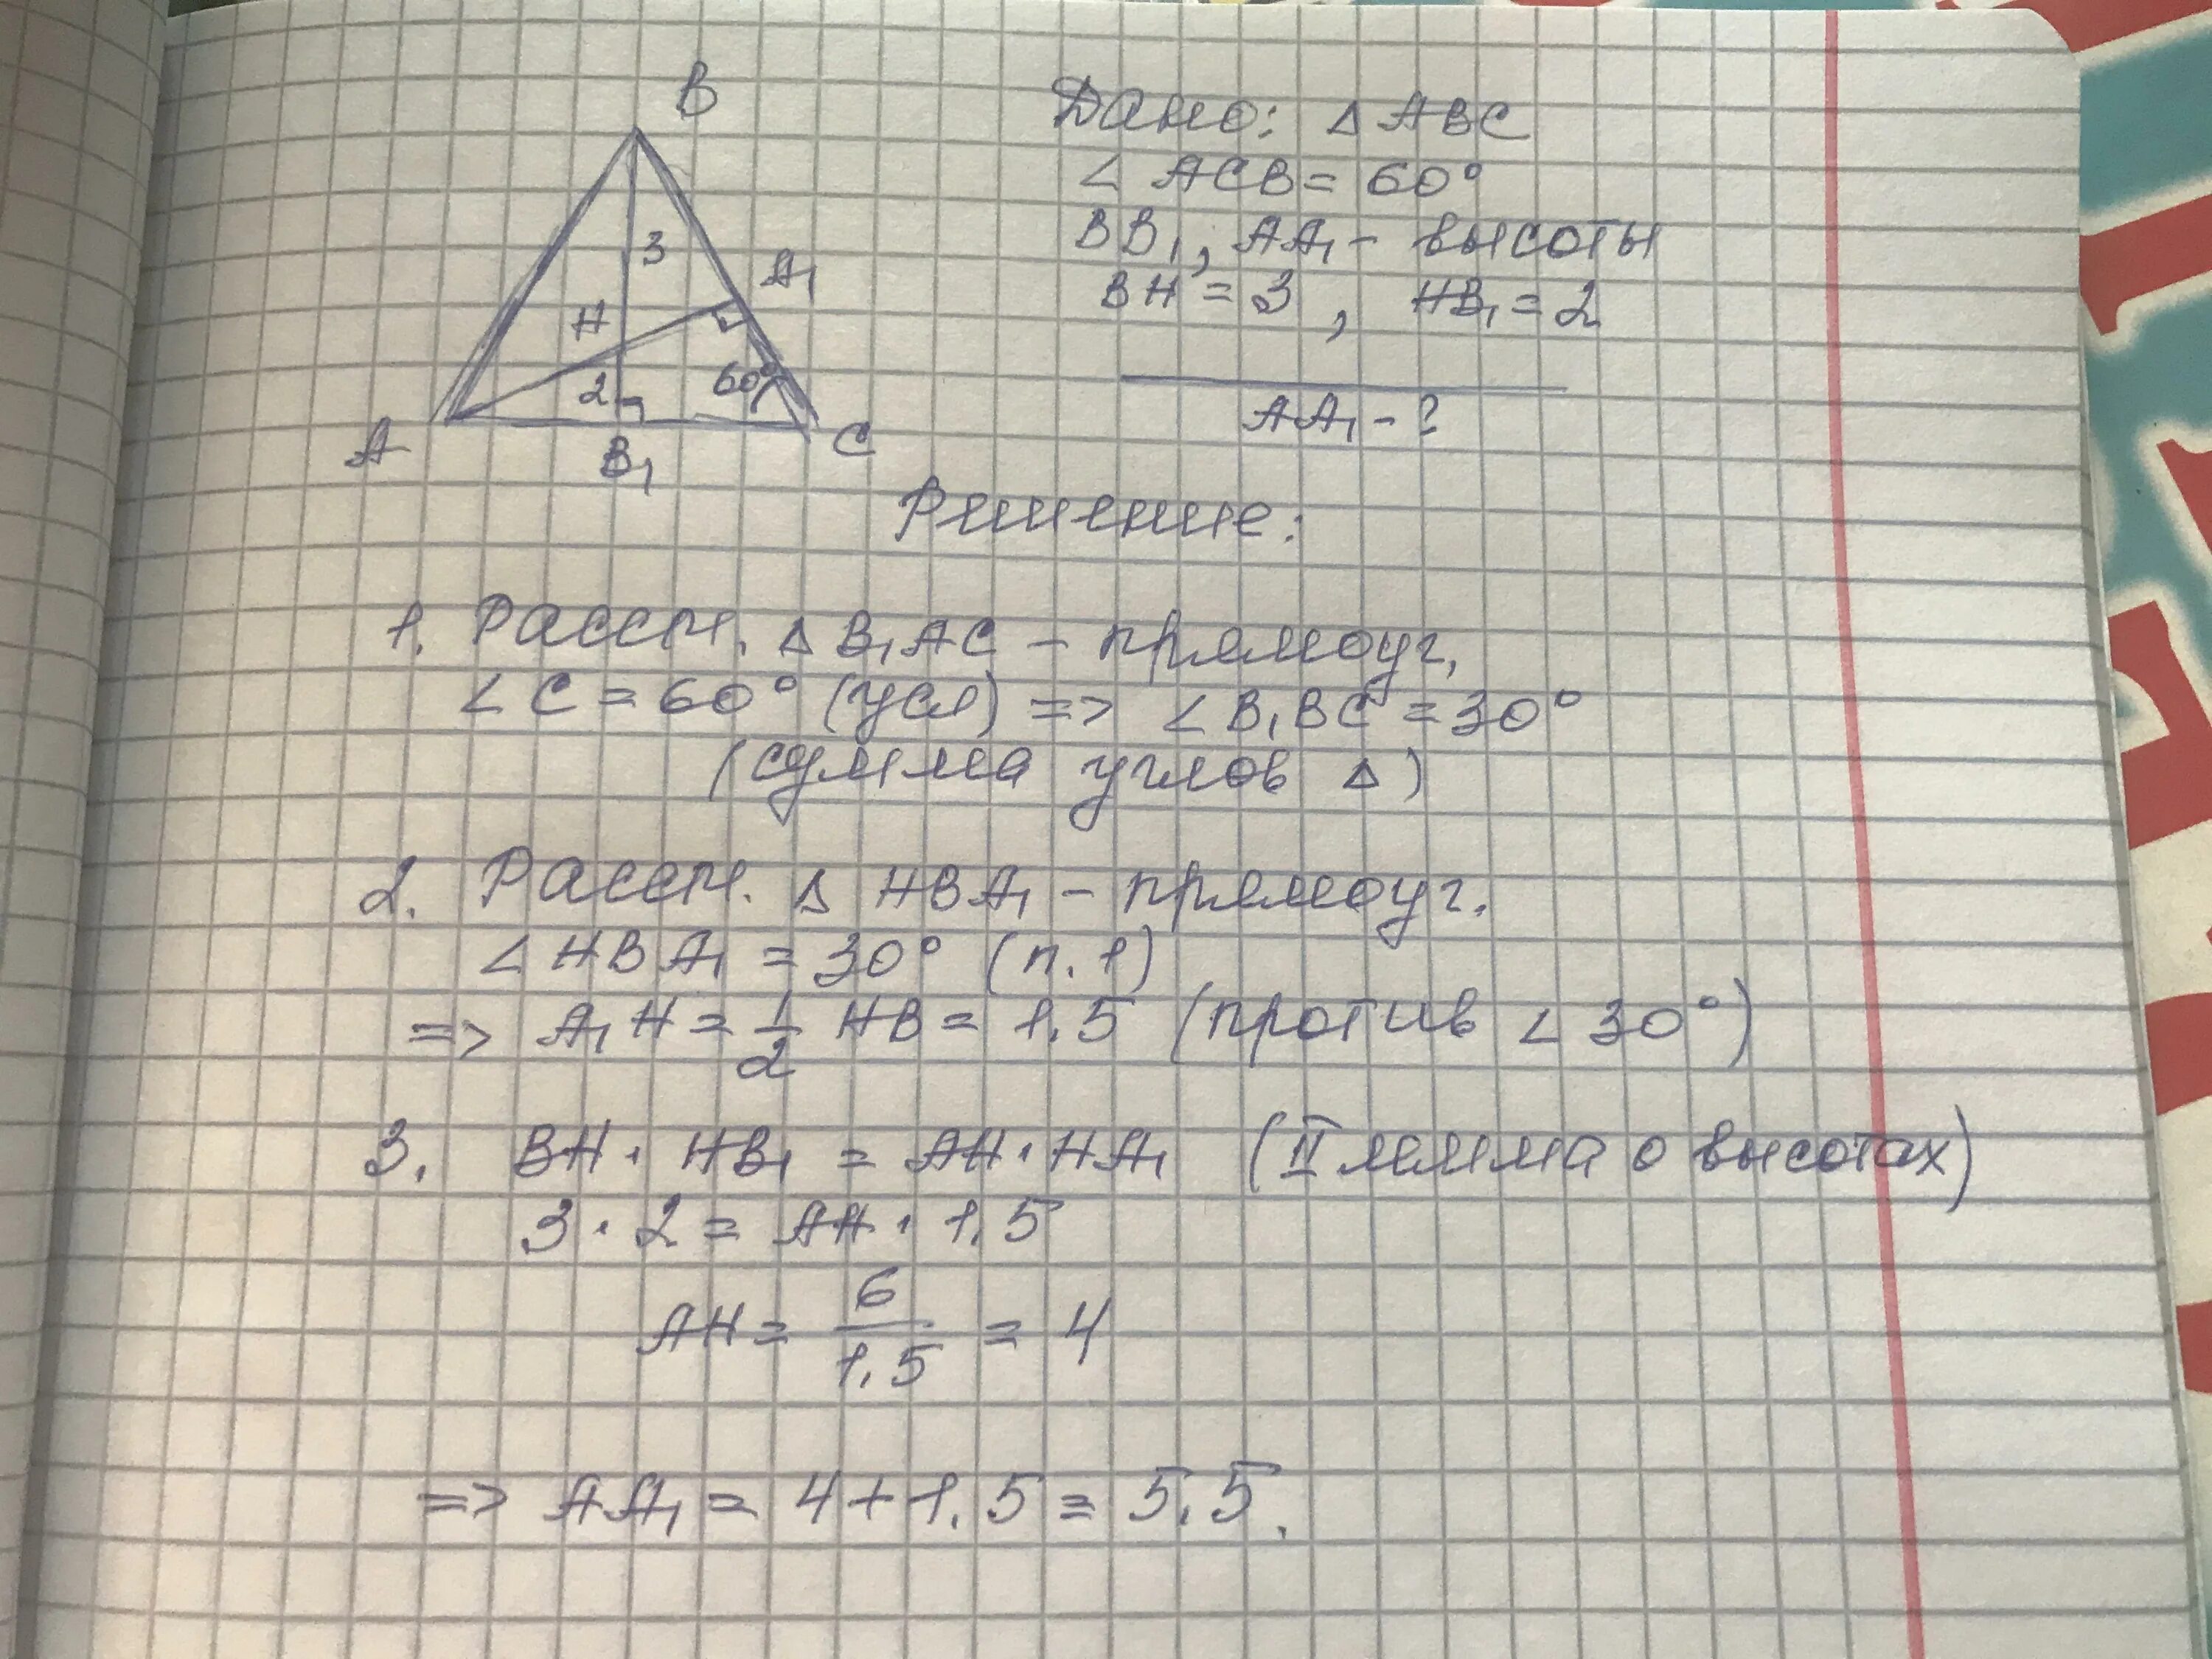 B
Дано: △ ABC
∠ ACB = 60°
BB₁, AA₁ - высоты
BH = 3, HB₁ = 2
AA₁ - ?
3
A₁
H
2
60°
A
B₁
C
Решение:
1. Рассм. △ B₁AC - прямоуг,
∠ C = 60° (усл) => ∠ B₁BC = 30°
(сумма углов △)
2. Рассм. △ HBA₁ - прямоуг.
∠ HBA₁ = 30° (п. 1)
=> A₁H = 1/2 HB = 1.5 (против ∠ 30°)
3. BH · HB₁ = AH · HA₁ (II лемма о высотах)
3 · 2 = AH · 1.5
AH = 6/1.5 = 4
=> AA₁ = 4 + 1.5 = 5.5.